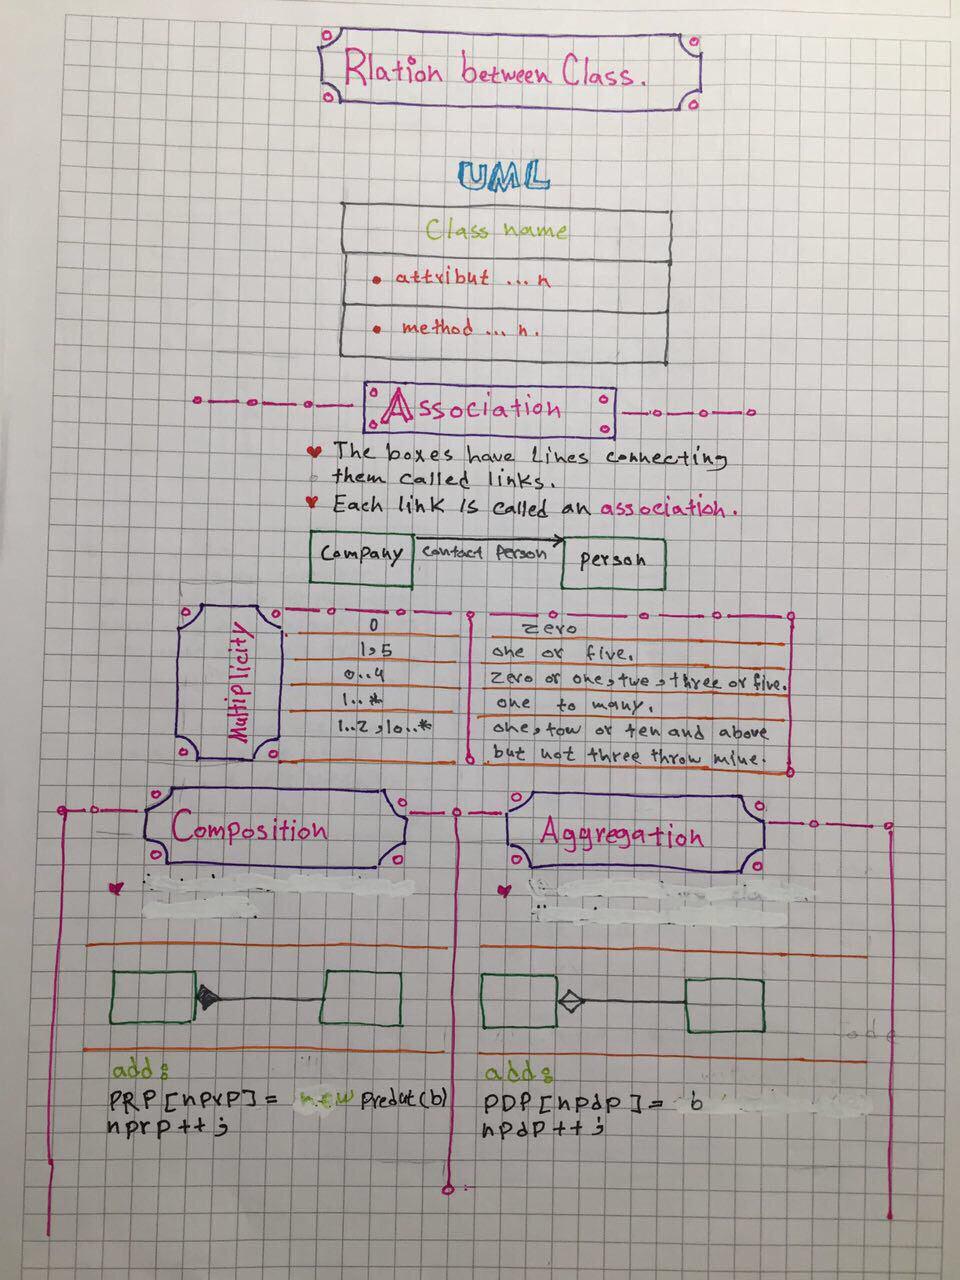 Rlation between Class.
UML
Class name
• attribut ... n
• method ... n.
Association
♥ The boxes have Lines connecting
them called links.
♥ Each link is called an association.
Company
contact Person
person
Multiplicity
0 zero
1,5 one or five.
0..4 zero or one, twe, three or five.
1..* one to many.
1..2, 10..* one, tow or ten and above
but not three throw mine.
Composition
Aggregation
add:
PRP [nprp] = new Predut(b)
nprp++;
add:
PDP [npdp] = b
npdp++;